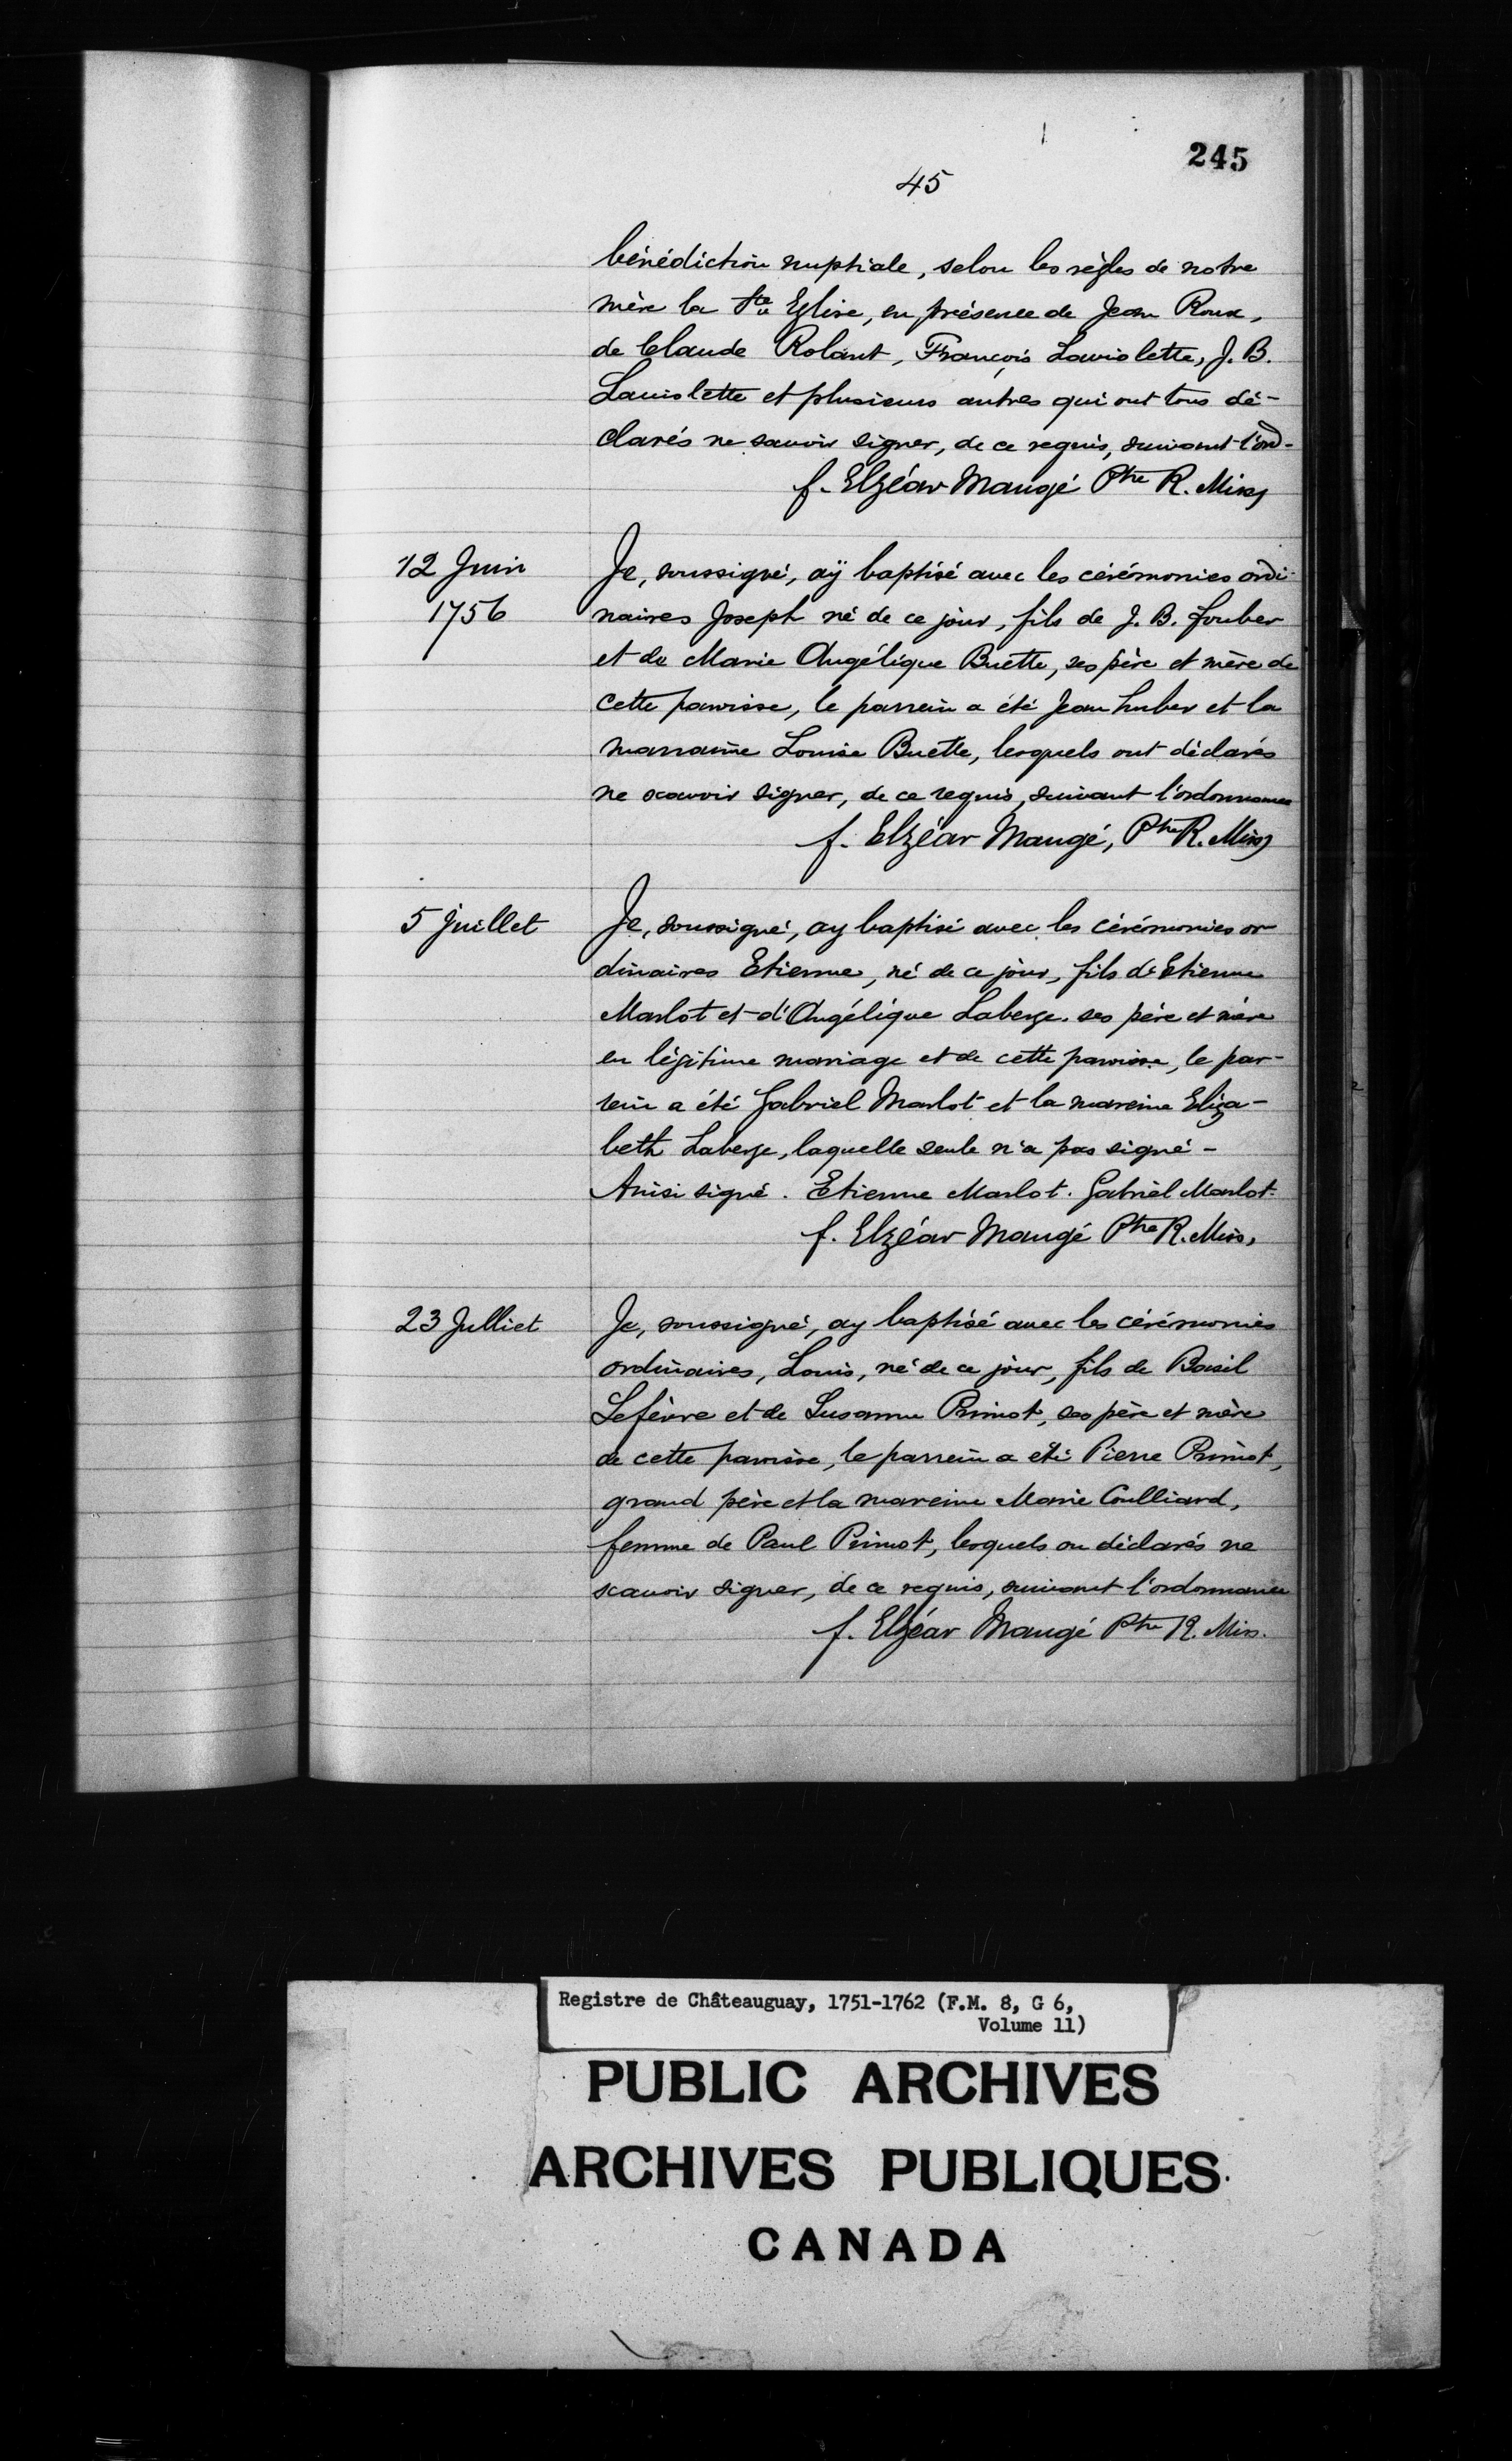 245
45
bénédiction nuptiale, selon les règles de notre
mère la Ste Eglise, en présence de Jean Roux,
de Claude Rolant, François Laviolette, J. B.
Laviolette et plusieurs autres qui ont tous dé-
clarés ne savoir signer, de ce requis, suivant l'ord-
f. Elzéar Maugé Ptre R. Miss
12 Juin
1756
Je, soussigné, aÿ baptisé avec les cérémonies ordi-
naires Joseph né de ce jour, fils de J. B. Jouber
et de Marie Angélique Buette, ses père et mère de
cette parroisse, le parrein a été Jean huber et la
marraine Louise Buette, lesquels ont déclarés
ne scavoir signer, de ce requis, suivant l'ordonnance
f. Elzéar Maugé, Ptre R. Miss
5 Juillet
Je, soussigné, ay baptisé avec les cérémonies or
dinaires Etienne, né de ce jour, fils d'Etienne
Marlot et d'Angélique Laberge. ses père et mère
en légitime mariage et de cette parroisse, le par-
rein a été Gabriel Marlot et la mareine Eliza-
beth Laberge, laquelle seule n'a pas signé -
Ainsi signé. Etienne Marlot. Gabriel Marlot.
f. Elzéar Maugé Ptre R. Miss,
23 Julliet
Je, soussigné, ay baptisé avec les cérémonies
ordinaires, Louis, né de ce jour, fils de Basil
Lefèvre et de Susanne Primot, ses père et mère
de cette parroisse, le parrein a été Pierre Primot,
grand père et la mareine Marie Coulliard,
femme de Paul Primot, lesquels on déclarés ne
scavoir signer, de ce requis, suivant l'ordonnance
f. Elzéar Maugé Ptre R. Miss.
Registre de Châteauguay, 1751-1762 (F.M. 8, G 6,
Volume 11)
PUBLIC ARCHIVES
ARCHIVES PUBLIQUES
CANADA